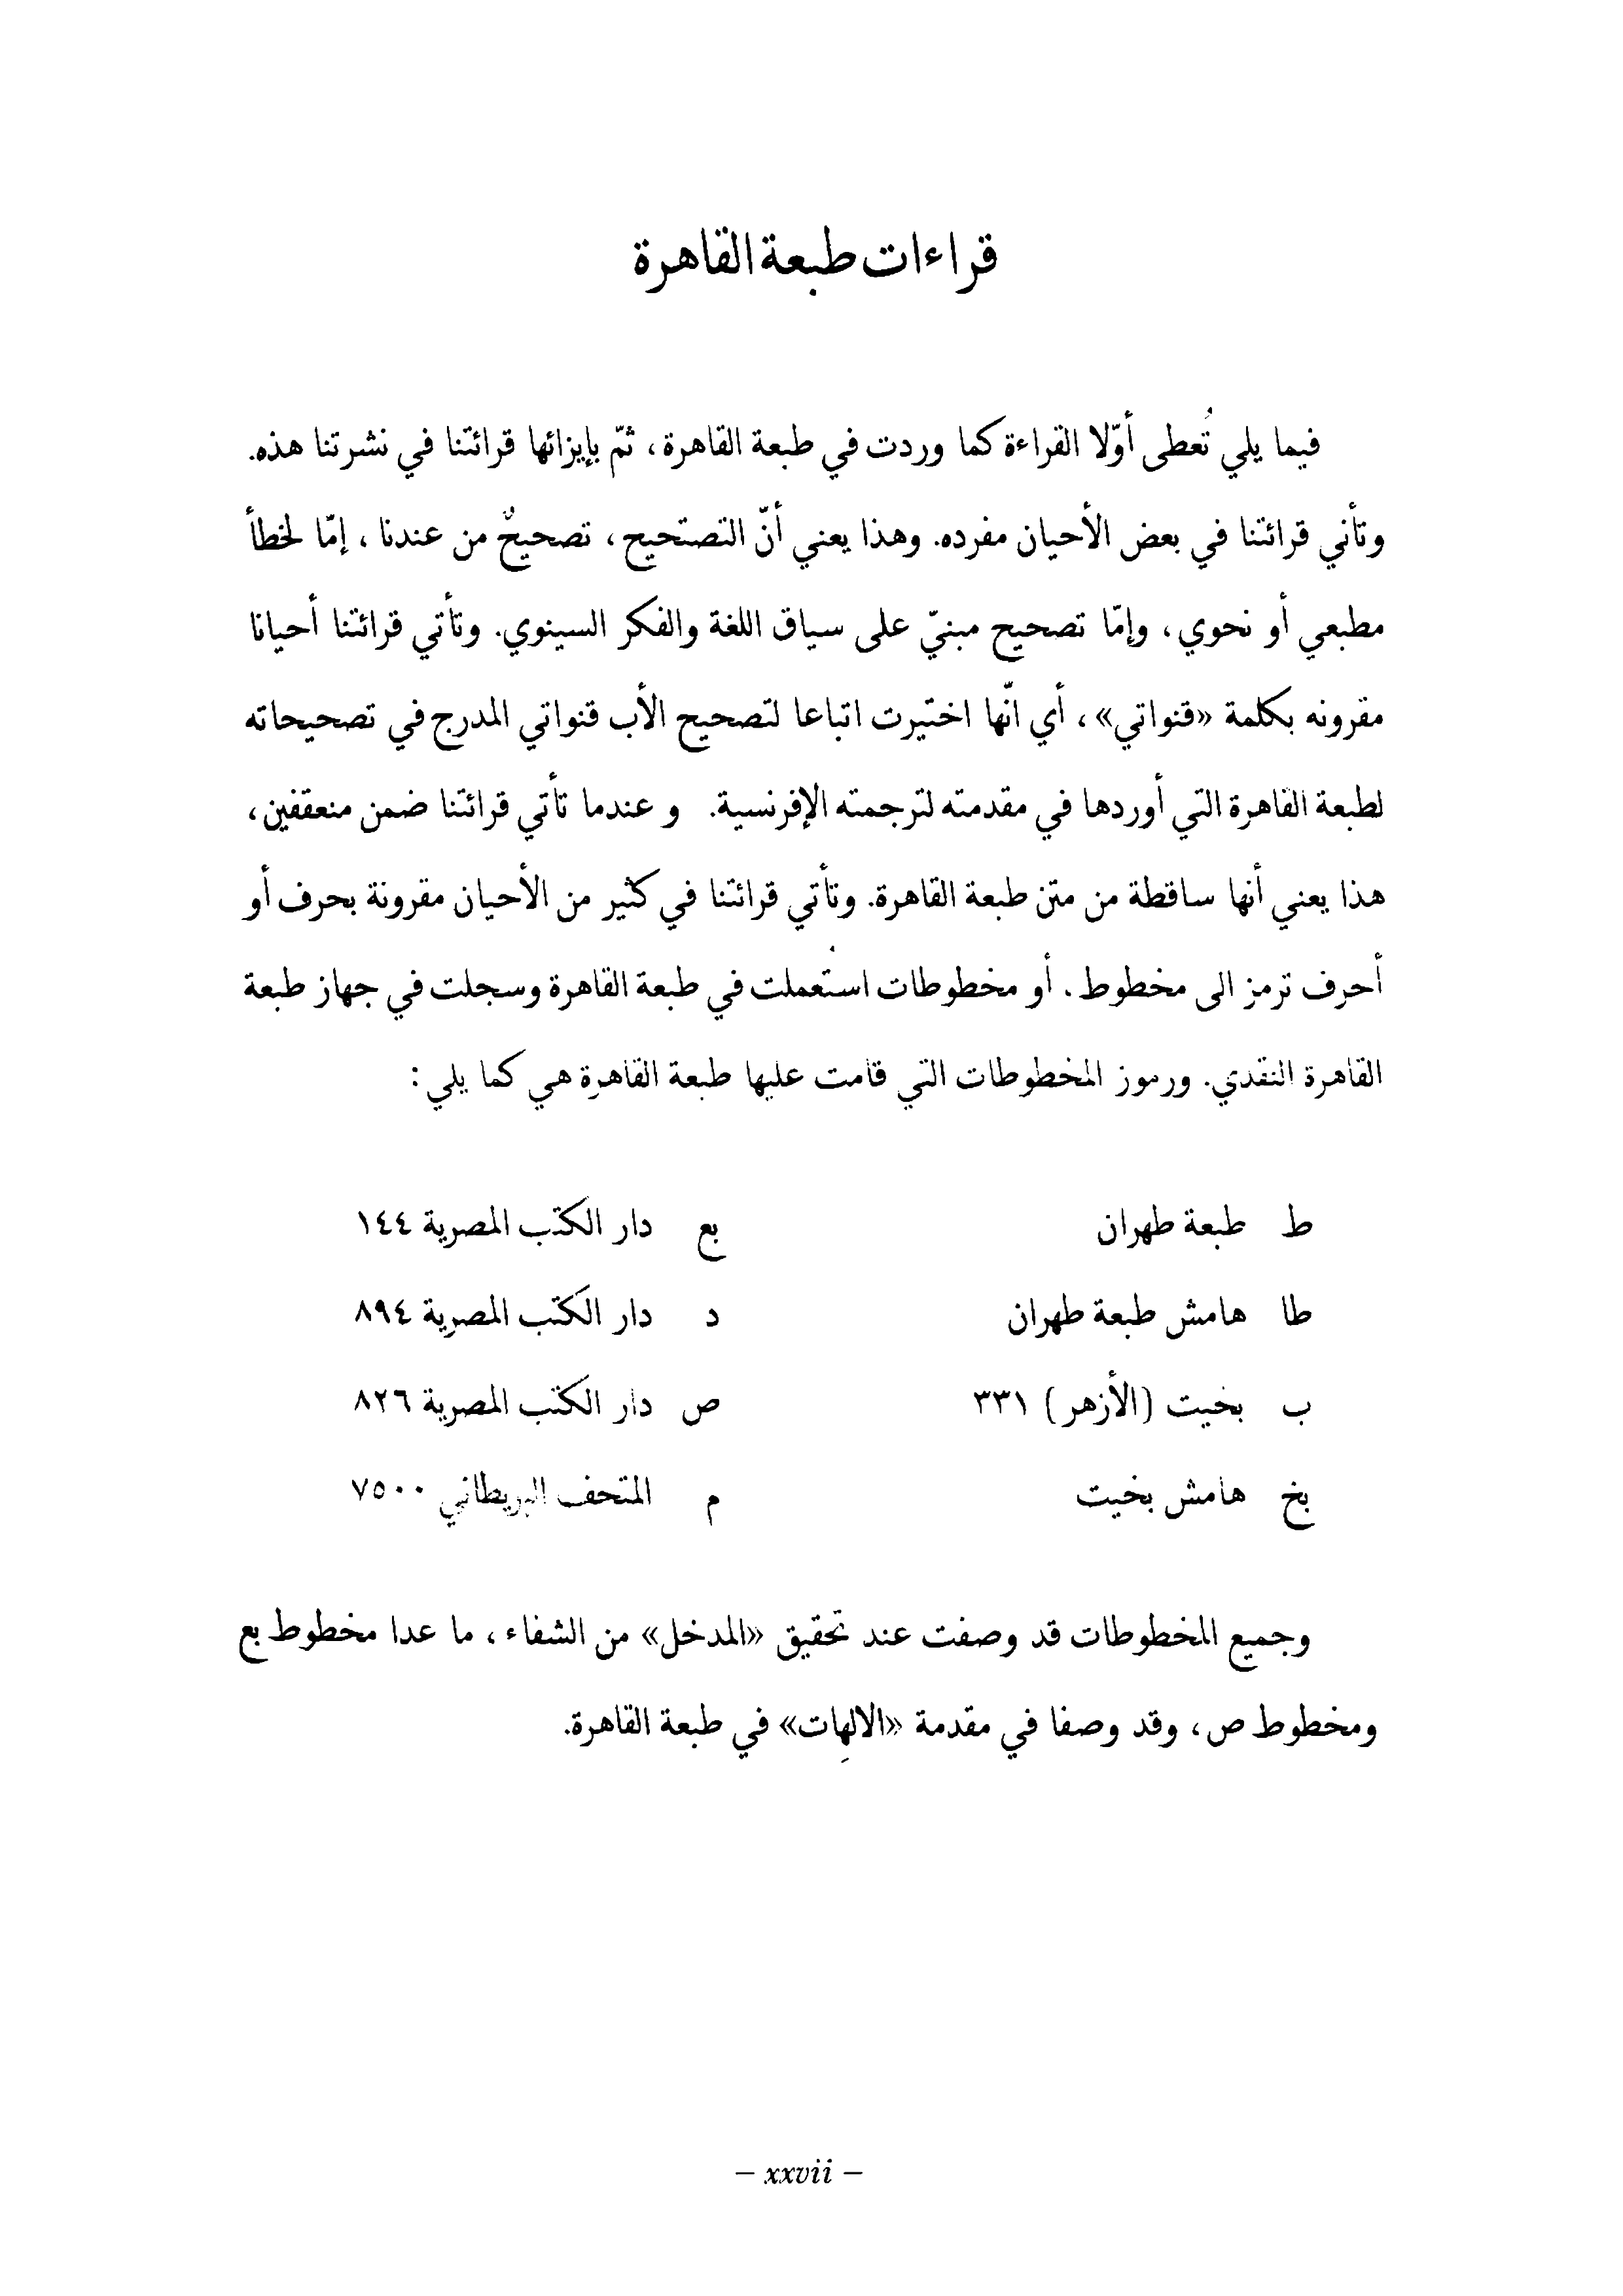 قراءات طبعة القاهرة
فيما يلي تُعطى أوّلا القراءة كما وردت في طبعة القاهرة، ثمّ بإيزائها قرائتنا في نشرتنا هذه.
وتأني قرائتنا في بعض الأحيان مفرده. وهذا يعني أنّ التصتحيح، تصحيحٌ من عندنا، إمّا لخطأ
مطبعي أو نحوي، وإمّا تصحيح مبنيّ على سياق اللغة والفكر السينوي. وتأتي قرائتنا أحيانا
مقرونه بكلمة «قنواتي»، أي انّها اختيرت اتباعا لتصحيح الأب قنواتي المدرج في تصحيحاته
لطبعة القاهرة التي أوردها في مقدمته لترجمته الإفرنسية. و عندما تأتي قرائتنا ضمن منعقفين،
هذا يعني أنها ساقطة من متن طبعة القاهرة. وتأتي قرائتنا في كثير من الأحيان مقرونة بحرف أو
أحرف ترمز الى مخطوط. أو مخطوطات استُعملت في طبعة القاهرة وسجلت في جهاز طبعة
القاهرة النقدي. ورموز المخطوطات التي قامت عليها طبعة القاهرة هي كما يلي:
ط طبعة طهران بع دار الكتب المصرية ١٤٤
طا هامش طبعة طهران د دار الكتب المصرية ٨٩٤
ب بخيت (الأزهر) ٣٣١ ص دار الكتب المصرية ٨٢٦
بخ هامش بخيت م المتحف البريطاني ٧٥٠٠
وجميع المخطوطات قد وصفت عند تحقيق «المدخل» من الشفاء، ما عدا مخطوط بع
ومخطوط ص، وقد وصفا في مقدمة «الالهِات» في طبعة القاهرة.
– xxvii –